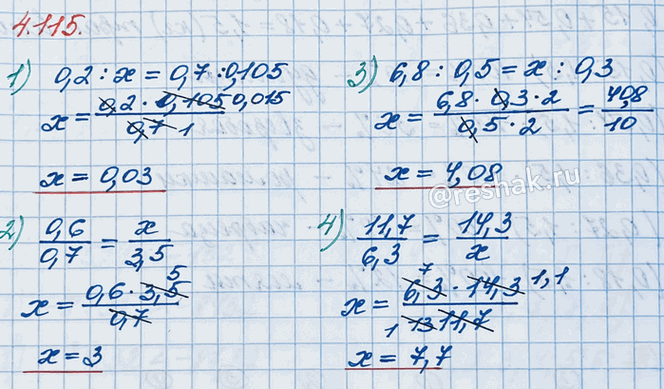 4.115.
1) 0,2 : x = 0,7 : 0,105
x = 0,2 · 0,105 0,015 / 0,7 1
x = 0,03
2) 0,6 / 0,7 = x / 3,5
x = 0,6 · 3,5 5 / 0,7
x = 3
3) 6,8 : 0,5 = x : 0,3
x = 6,8 · 0,3 · 2 / 0,5 · 2 = 40,8 / 10
x = 4,08
@reshak.ru
4) 11,7 / 6,3 = 14,3 / x
x = 7 6,3 · 14,3 1,1 / 1 13 11,7
x = 7,7